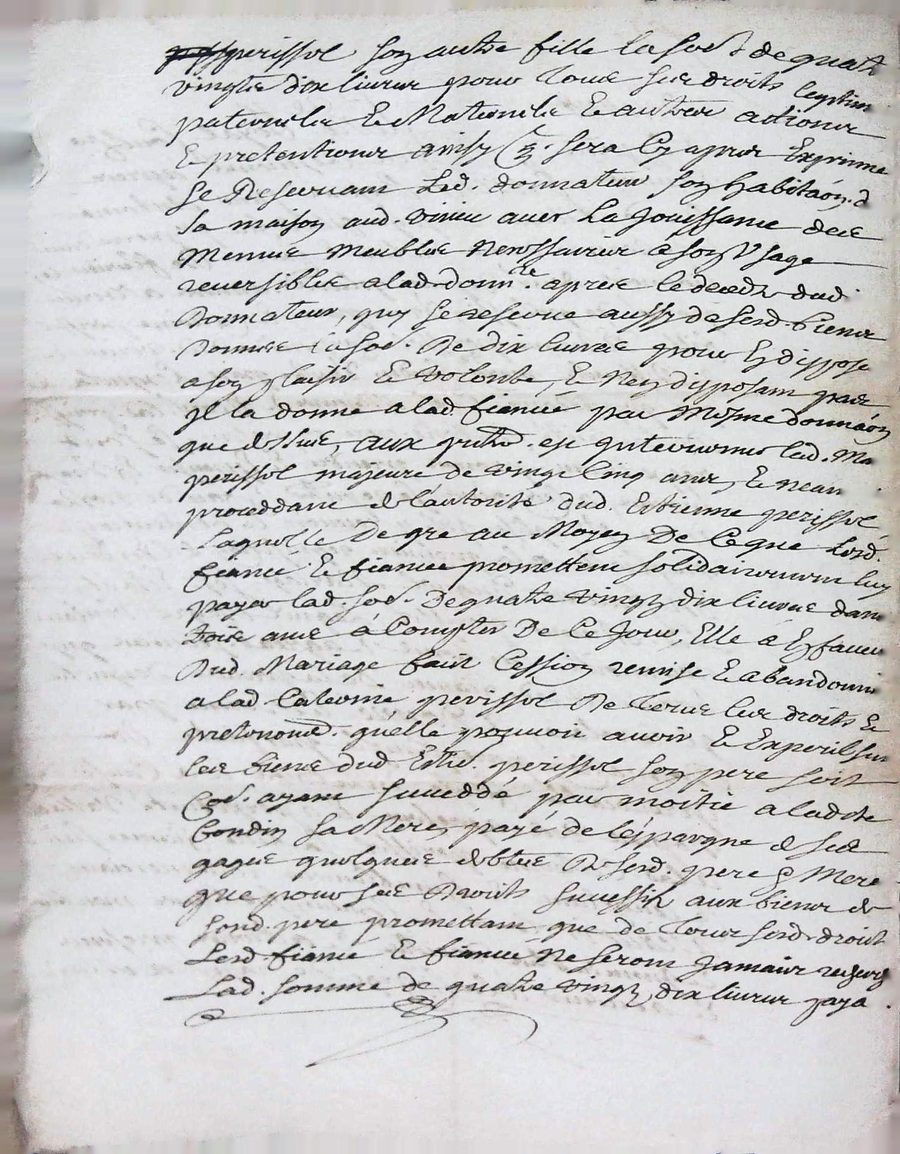 perissol son autre fille la so.e de quatre
vingts dix livres pour tous ses droits legitim
paternelle et Maternelle et autres actions
et pretentions ainsy q. sera cy apres Exprime
se Reservant Led. donnateur son habitaon. d
sa maison aud. avec La Jouissance des
Menus Meubles Necessaires a son Usage
reversibles alad. donn.re apres le deceds dud
Donnateur, quy se reserve aussy de sesd. biens
Donnes la so.e De dix livres pour En disposer
a son plaisir et volonte, et Ney disposant pas
Il la donne alad fiancée par Mesme donnaon
que dessus, aux est intervenue lad. Ma
perissol majeure de vingt cinq ans, et nean
procedant de l'autorité dud. Estienne perissol
Laquelle De gre au Moyen De ce que Lesd.
fiancé et fiancée promettent solidairement luy
payer lad. so.e De quatre vingts dix livres dans
trois ans à Compter De ce Jour, Elle a En faveur
Dud. Mariage fait Cession remise et abandonné
a lad Caterine perissol De tous les droits et
quelle pouvoit avoir et Exper sur
les biens dud Esti.e perissol son pere soit
ayant succedé par moitié a ladite
bondin sa Mere, payé de l'espargne de ses
gages quelques debtes De sesd. pere et Mere
que pour ses Droits successifs aux biens de
sond. pere promettant que de tous sesd. droits
Lesd fiancé et fiancée Ne seront Jamais
Lad. somme de quatre vingts dix livres paya